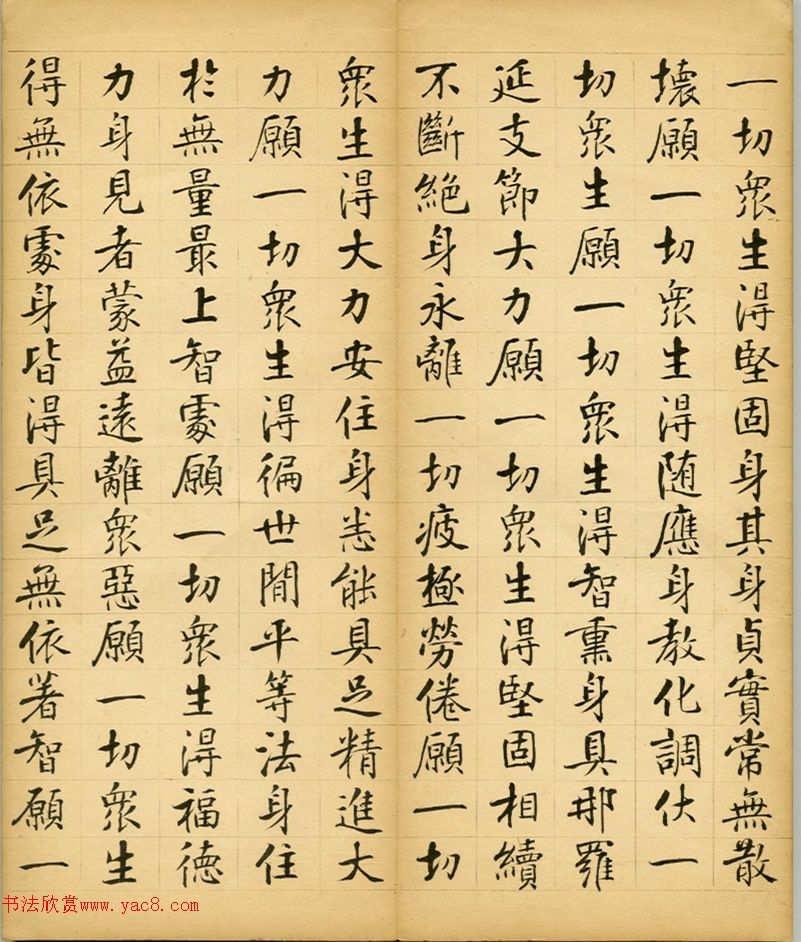 一切眾生得堅固身其身貞實常無散
壞願一切眾生得随應身教化調伏一
切眾生願一切眾生得智熏身具那羅
延支節大力願一切眾生得堅固相續
不斷絕身永離一切疲極勞倦願一切
眾生得大力安住身悉能具足精進大
力願一切眾生得徧世間平等法身住
於無量最上智處願一切眾生得福德
力身見者蒙益遠離眾惡願一切眾生
得無依處身皆得具足無依著智願一
书法欣赏www.yac8.com